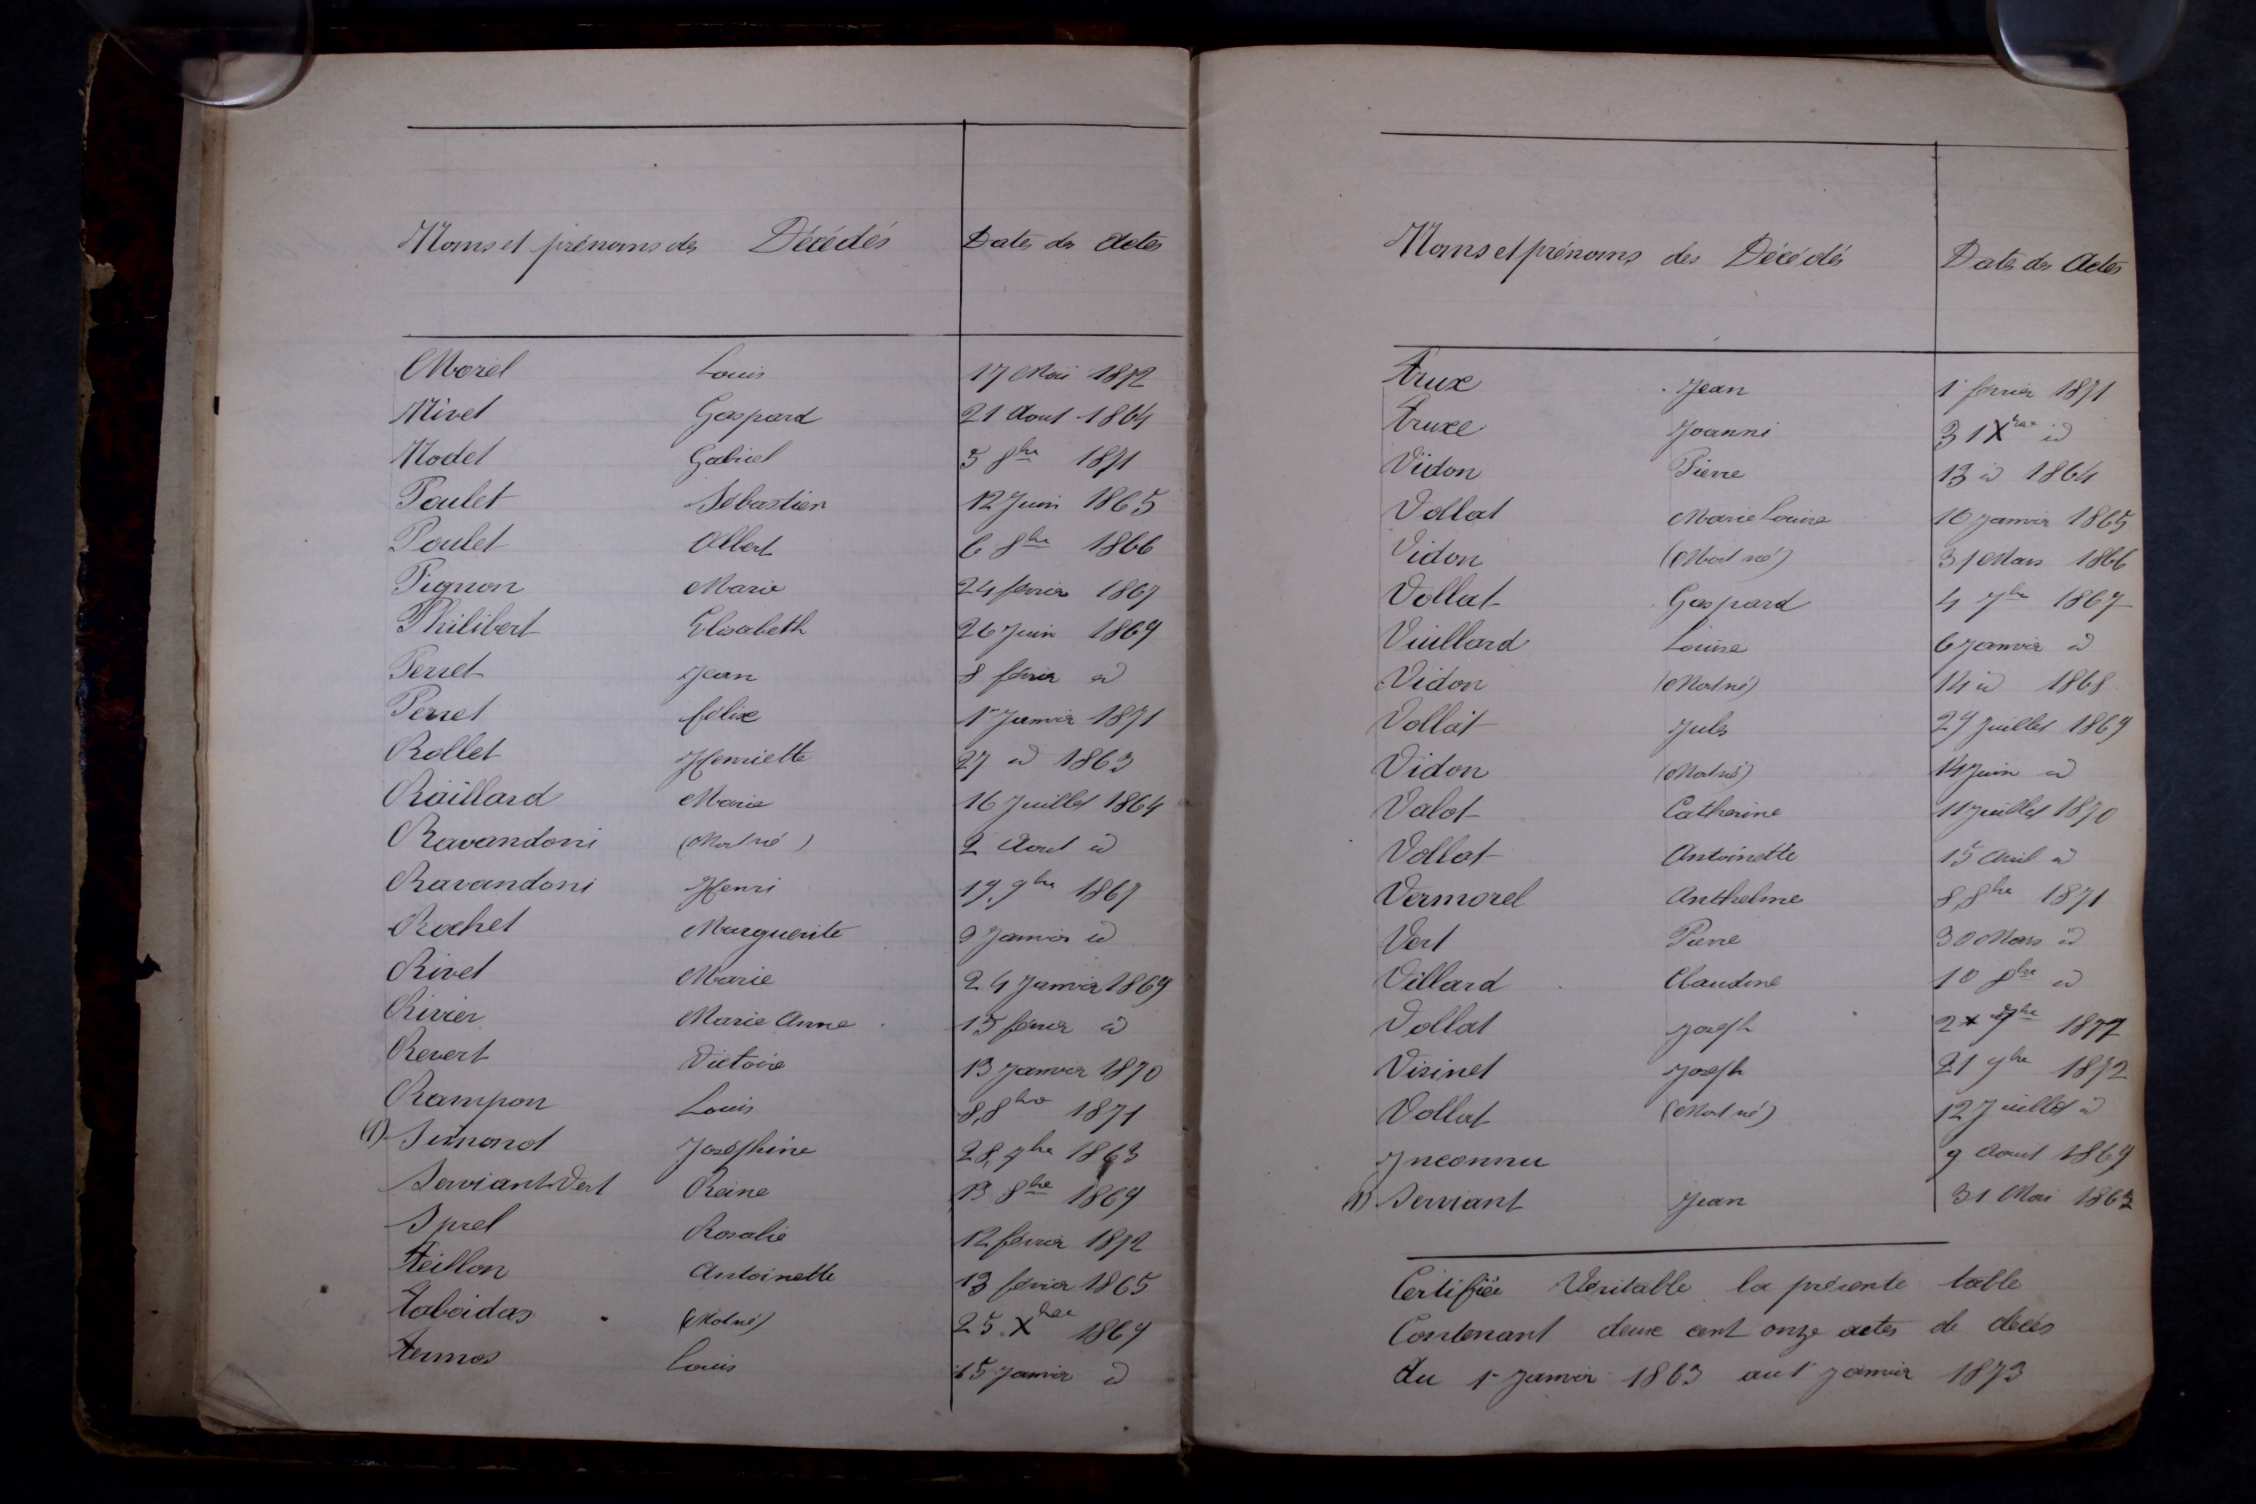 Noms et prénoms des Décédés Dates des Actes
Morel Louis 17 Mai 1872
Nivet Gaspard 21 Aout 1864
Nodet Gabriel 5 8bre 1871
Poulet Sébastien 12 Juin 1865
Poulet Albert 6 8bre 1866
Pignon Marie 24 février 1867
Philibert Elisabeth 26 Juin 1869
Perret Jean 8 février id
Perret félix 1er Janvier 1871
Rollet Henriette 27 id 1863
Raillard Marie 16 Juillet 1864
Ravandoni (Mort né) 2 Aout id
Ravandoni Henri 17 9bre 1867
Rochet Marguerite 9 Janvier id
Rivet Marie 24 Janvier 1869
Rivier Marie Anne 15 février id
Revert Victoire 13 Janvier 1870
Rampon Louis 8 8bre 1871
(1) Simonot Joséphine 28 9bre 1863
Serviant Vert Reine 13 8bre 1869
Sprel Rosalie 12 février 1872
Teillon Antoinette 13 février 1865
Taboidas (Mort né) 25 Xbre 1867
Termos Louis 15 Janvier id
Noms et prénoms des Décédés Dates des Actes
Trux Jean 1er février 1871
Truxe Joanni 31 Xbre id
Vidon Pierre 13 id 1864
Vollat Marie Louise 10 Janvier 1865
Vidon (Mort né) 31 Mars 1866
Vollat Gaspard 4 7bre 1867
Vuillard Louise 6 Janvier id
Vidon (Mort né) 14 id 1868
Vollat Jules 27 Juillet 1869
Vidon (Mort né) 14 Juin id
Valot Catherine 11 Juillet 1870
Vollat Antoinette 15 Avril id
Vermorel Anthelme 8 8bre 1871
Vert Pierre 30 Mars id
Villard Claudine 10 8bre id
Vollat Joseph 2 7bre 1872
Visinet Joseph 21 9bre 1872
Vollat (Mort né) 12 Juillet id
Inconnu 9 Aout 1869
(1) Serviant Jean 31 Mai 1863
Certifiée Véritable la présente table
Contenant deux cent onze actes de décès
du 1er Janvier 1863 au 1er Janvier 1873